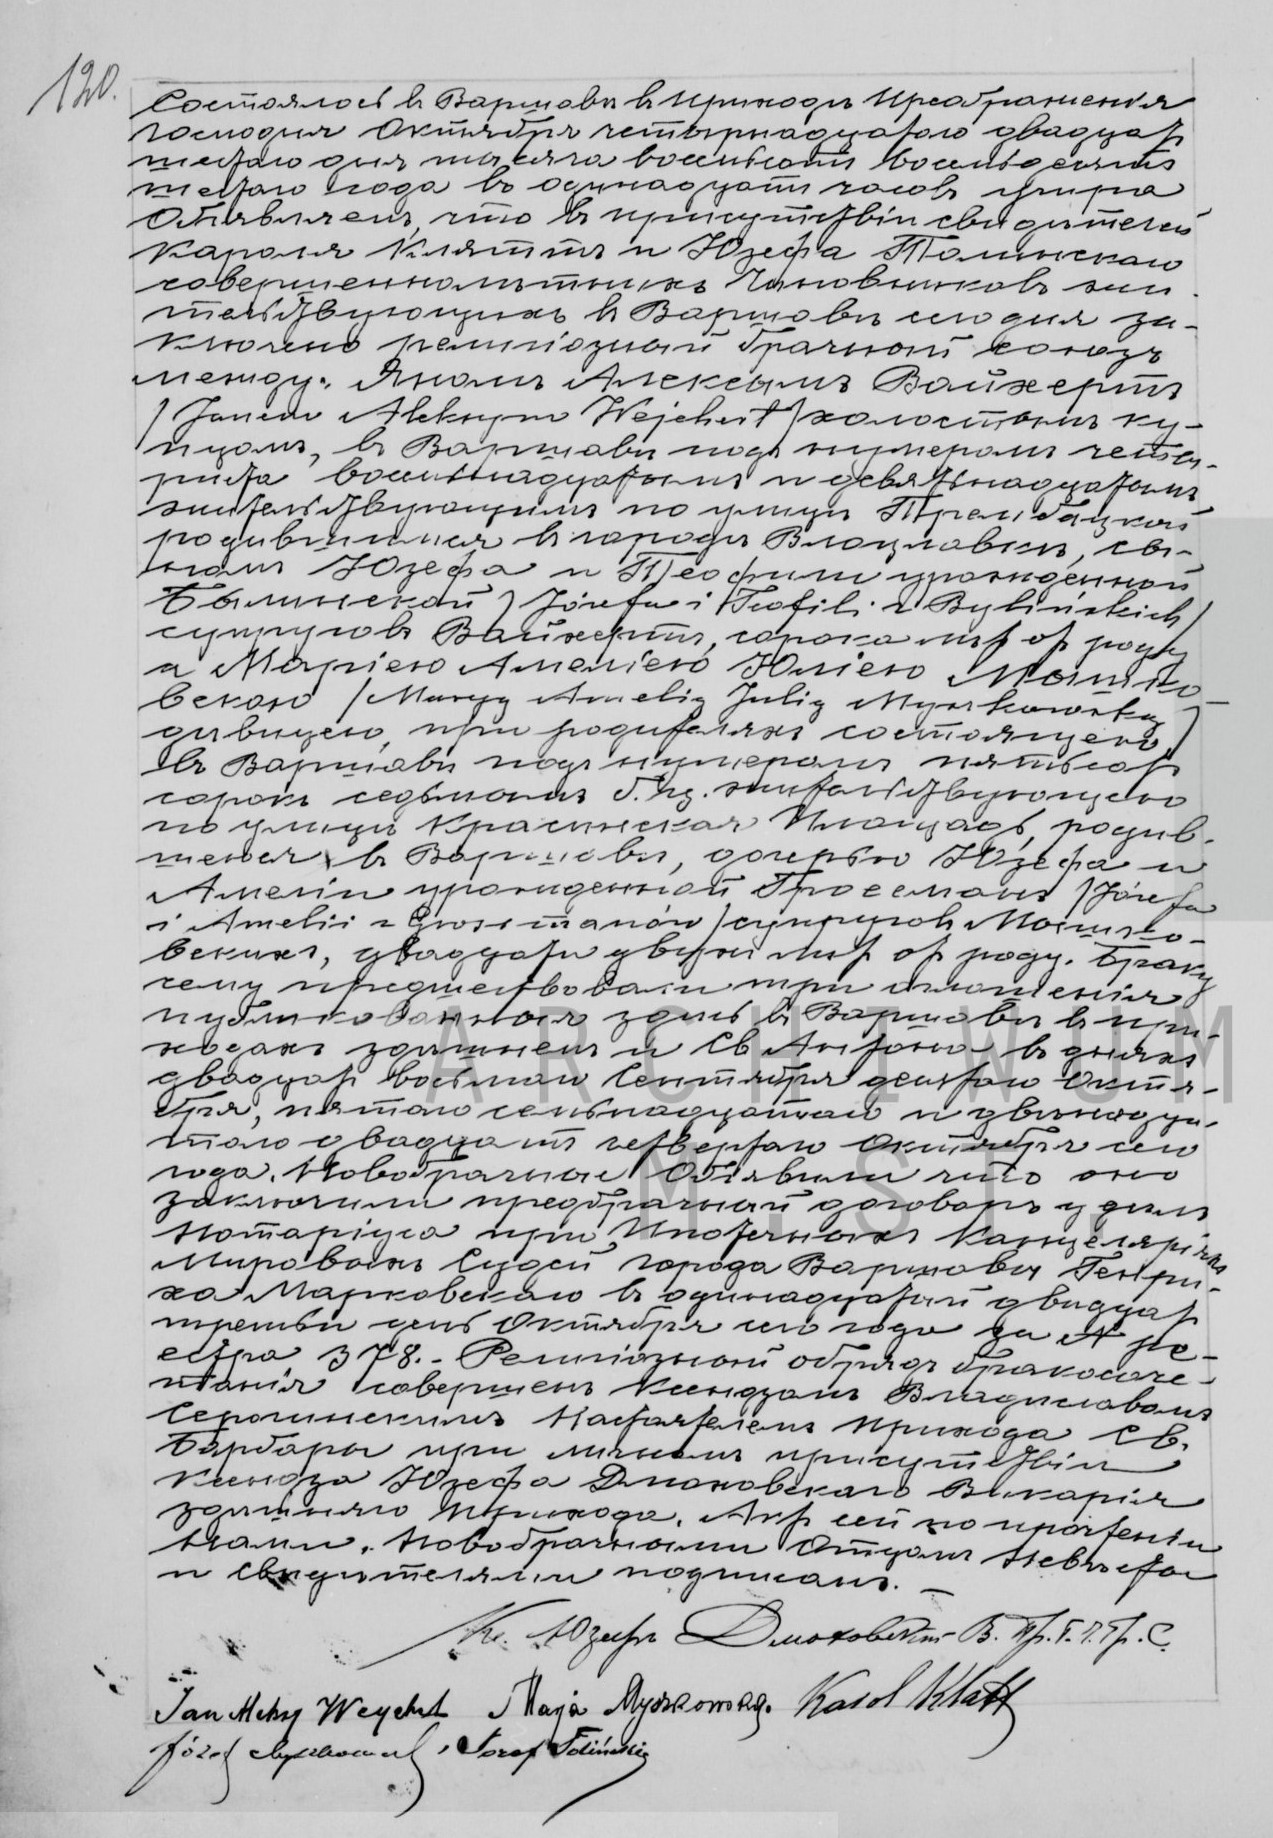 120.
Состоялось въ Варшавѣ въ приходѣ Преображенія
Господня Октября четырнадцатого двадцать
шестаго дня тысяча восемьсотъ восемьдесятъ
шестаго года въ одинадцать часовъ утра
Объявляемъ, что въ присутствіи свидѣтелей
Кароля Клятта и Юзефа Толинскаго
совершеннолѣтнихъ чиновниковъ жи-
тельствующихъ въ Варшавѣ сего дня за-
ключенъ религіозный брачный союзъ
между: Яномъ Алексымъ Вайхертъ
/Janem Aleksym Wejchert/ холостымъ ку-
пцомъ, въ Варшавѣ подъ нумеромъ четы-
риста восемьнадцатымъ и девятьнадцатымъ
жительствующимъ по улицѣ Трембацкой
родившимся въ городѣ Влоцлавкѣ, сы-
номъ Юзефа и Теофили урожденной
Былинской /Józefa i Teofili z Bylińskich/
супруговъ Вайхертъ, сорока лѣтъ отъ роду
а Маріею Амеліею Юліею Мышко-
вскою /Maryą Amelią Julią Myszkowską/
дѣвицею, при родителяхъ состоящею,
въ Варшавѣ подъ нумеромъ пятьсотъ
сорокъ седьмымъ жительствующею
по улицѣ Красинская Площадь, родив-
шеюся въ Варшавѣ, дочерью Юзефа и
Амеліи урожденной Гросеманъ /Józefa
i Amelii z Grossmanów/ супруговъ Мышко-
вскихъ, двадцати двухъ лѣтъ отъ роду. Браку
сему предшествовали три оглашенія
публикованныя здѣсь въ Варшавѣ въ при-
ходахъ здѣшнемъ и Св Антонія въ дняхъ
двадцать восьмаго Сентября десятаго Октя-
бря, пятаго семьнадцатаго и двѣнадца-
таго двадцать четвертаго Октября сего
года. Новобрачные объявили что они
заключили предбрачный договоръ у
Нотаріуса при Ипотечныхъ Канцеляріяхъ
Мировыхъ Судей города Варшавы Генри-
ха Марковскаго въ одинадцатый двадцать
третьи день Октября сего года за № ре-
естра 378. - Религіозный обрядъ бракосоче-
танія совершенъ Ксендзомъ Владиславомъ
Настоятелемъ Прихода Св.
Барбары при личномъ присутствіи
Ксендза Юзефа Дмоховскаго Викарія
здѣшняго прихода. Актъ сей по прочтеніи
нами, Новобрачными Отцомъ Невѣсты
и Свидѣтелями подписанъ. -
Кс. Юзефъ Дмоховскій В. Пр. Г. П. Гр. С.
Jan Aleksy Weychert Marja Myszkowska. Karol Klatt
Józef Myszkowski, Józef Toliński
ARCHIWUM
M. ST.